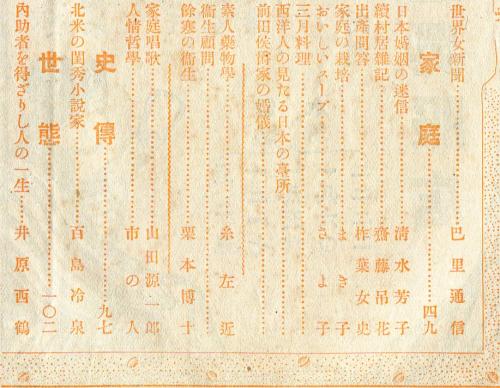 世界女新聞 巴里通信
家庭 四九
日本婚姻の迷信 清水芳子
續村居雜記 齋藤吊花
出產問答 柞葉女史
家庭の栽培 まき子
おいしいスープ
三月料理 さよ子
西洋人の見たる日本の臺所
前田侯爵家の婚儀
素人藥物學 糸左近
衞生顧問
餘寒の衞生 栗本博士
家庭唱歌 山田源一郎
人情哲學 市の人
史傳 九七
北米の閨秀小說家 百島冷泉
世態 一〇二
內助者を得ざりし人の一生 井原西鶴